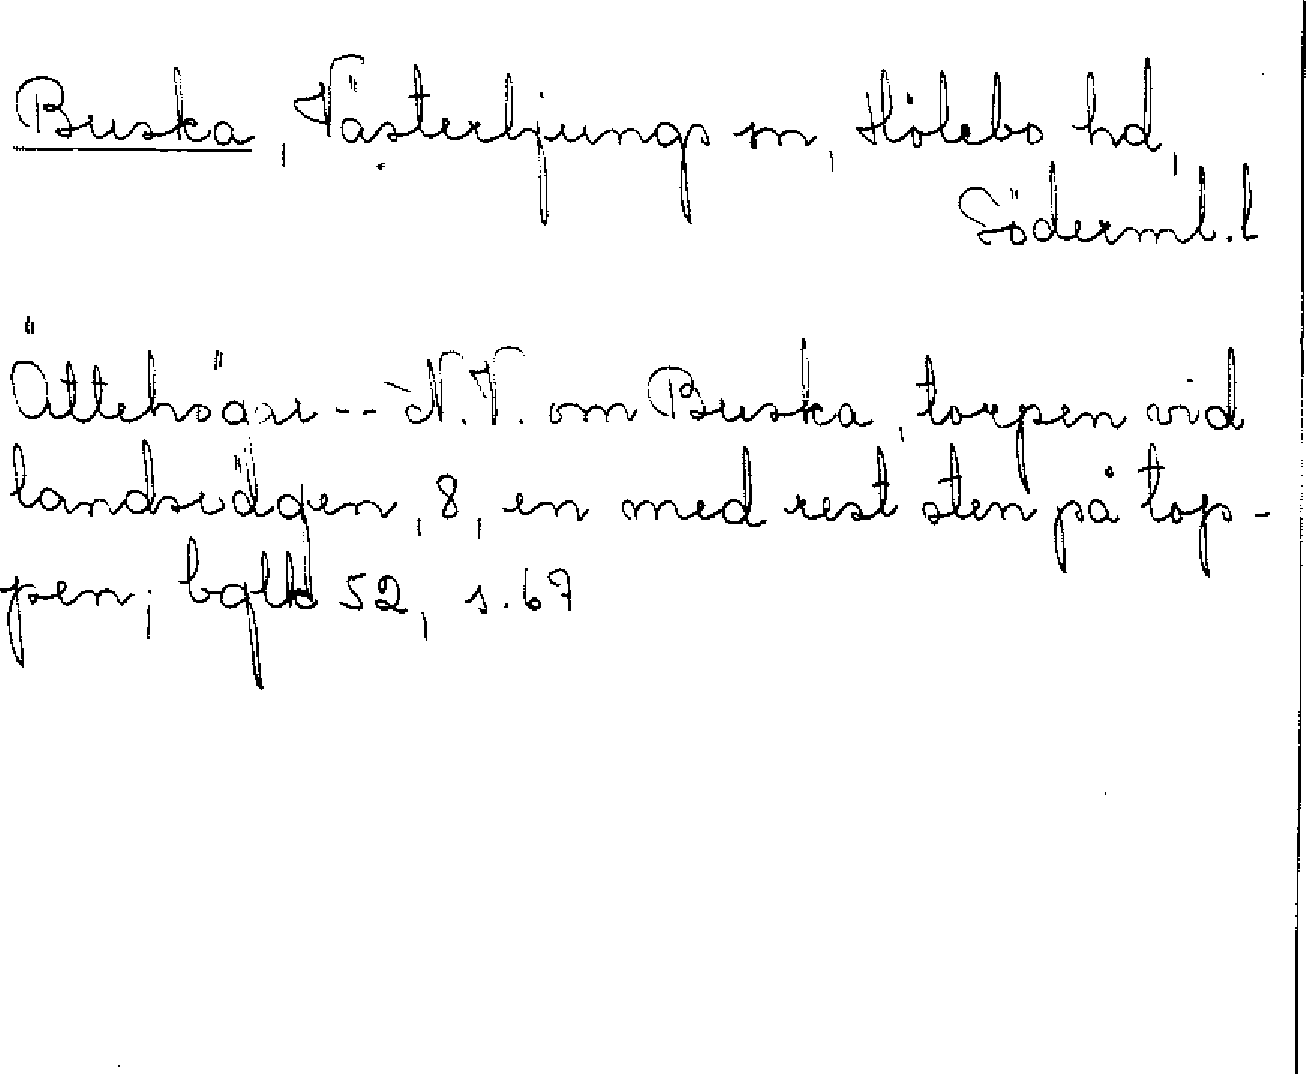 Buska, Västerljungs sn, Hölebo hd,
Söderml.l
Ättehögar -- N.V. om Buska, torpen vid
landsvägen, 8, en med rest sten på top-
pen; bglk 52, s. 67